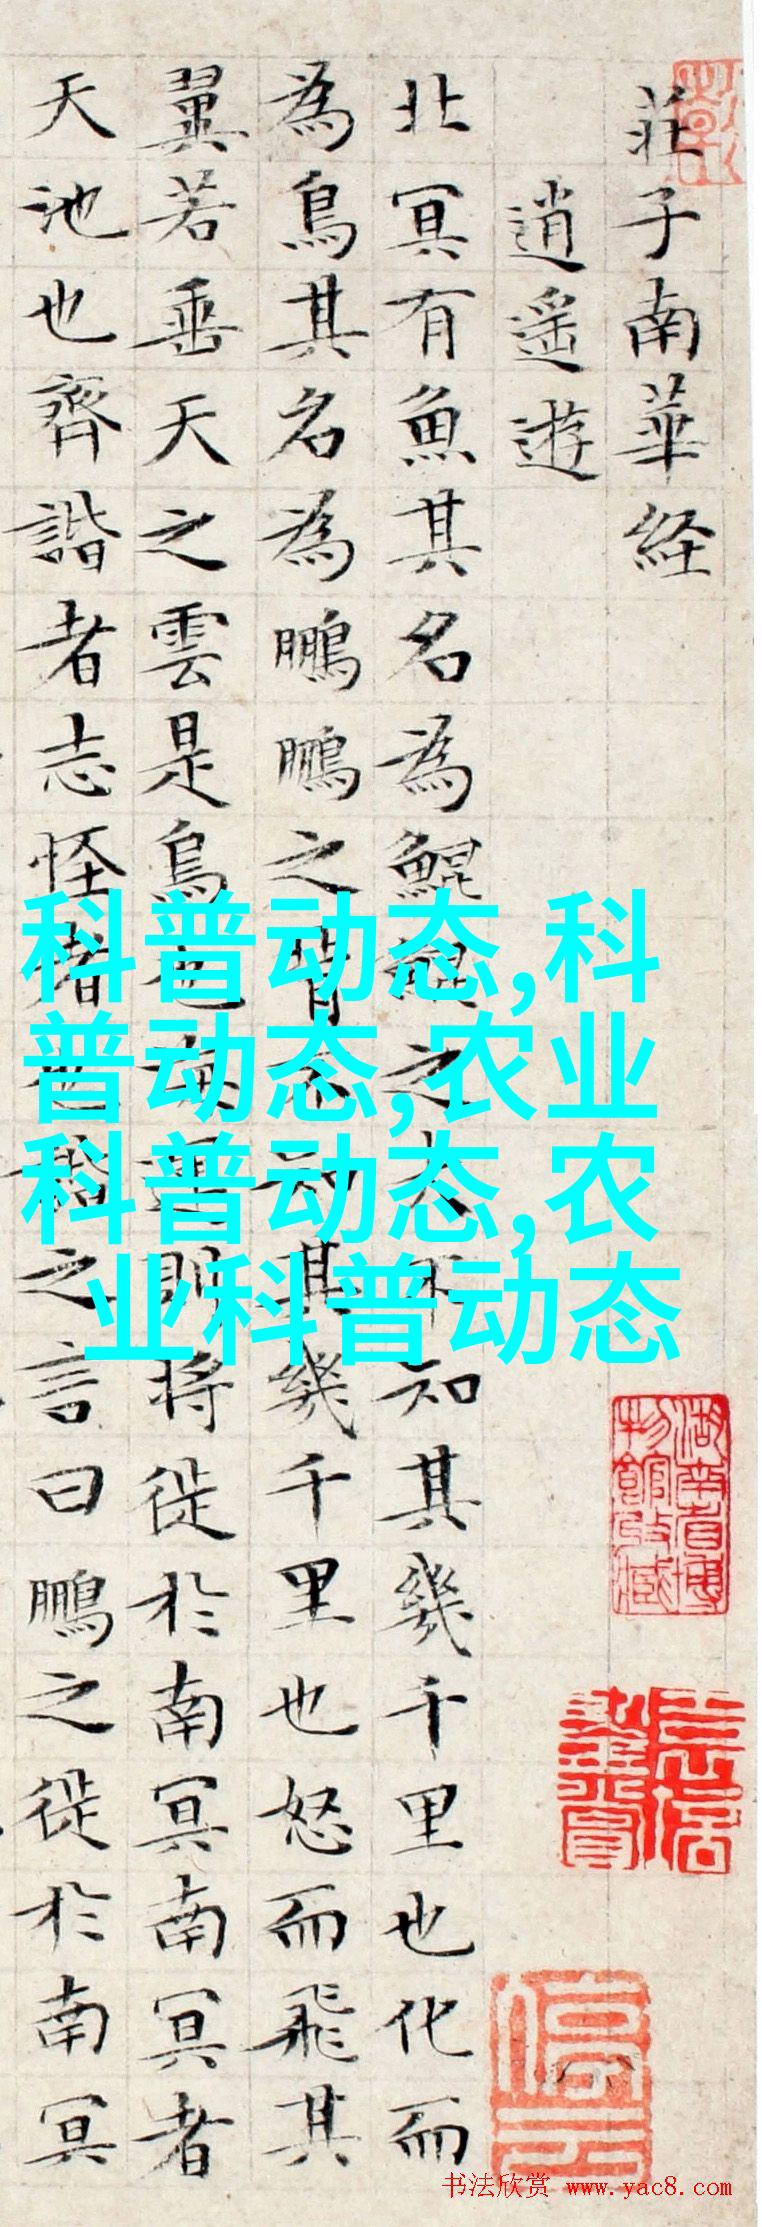 莊子南華経
逍遥遊
北冥有魚其名為鯤鯤之大不知其幾千里也化而
為鳥其名為鵬鵬之背不知其幾千里也怒而飛其
翼若垂天之雲是鳥也海運則将徙於南冥南冥者
天池也齊諧者志怪者也諧之言曰鵬之徙於南冥
科普动态,科
普动态,农业
科普动态,农
业科普动态
湖南省博
物館收藏
书法欣赏 www.yac8.com